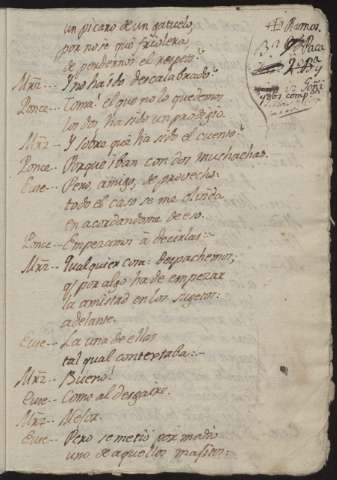 un picaro de un gatuelo,
por no se que friolera,
de perdernos el respeto.
Mrz.. Y no ha sido descalabrado?
Ponce.. Toma! el que no lo quedemos
los dos, ha sido un prodigio.
Mrz.. Y sobre que ha sido el cuento?
Ponce.. Porque iban con dos muchachas.
Eute.. Pero, amigo, de provecho.
todo el caso se me olvida
en acordandome de eso.
Ponce.. Empezamos à decirlas:
Mrz.. Qualquier cosa: despachemos,
q.e por algo ha de empezar
la amistad en los sugetos.
adelante.
Eute.. La una de ellas
tal qual contestaba:
Mrz.. Bueno!
Eute.. Como al desgaire.
Mrz.. Mejor.
Eute.. Pero se metiò por medio
uno de aquellos
Ramos.
Paca